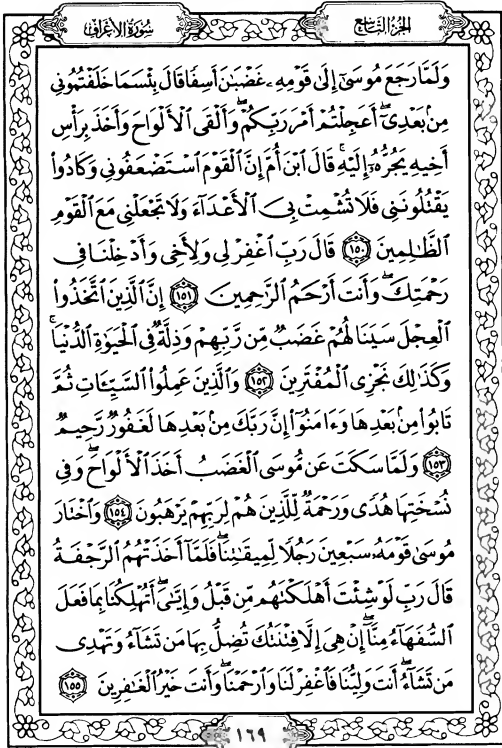 الجزء التاسع
سورة الأعراف
وَلَمَّا رَجَعَ مُوسَىٰٓ إِلَىٰ قَوْمِهِۦ غَضْبَٰنَ أَسِفًا قَالَ بِئْسَمَا خَلَفْتُمُونِي
مِنۢ بَعْدِيٓۖ أَعَجِلْتُمْ أَمْرَ رَبِّكُمْۖ وَأَلْقَى ٱلْأَلْوَاحَ وَأَخَذَ بِرَأْسِ
أَخِيهِ يَجُرُّهُۥٓ إِلَيْهِۚ قَالَ ٱبْنَ أُمَّ إِنَّ ٱلْقَوْمَ ٱسْتَضْعَفُونِي وَكَادُوا۟
يَقْتُلُونَنِي فَلَا تُشْمِتْ بِيَ ٱلْأَعْدَآءَ وَلَا تَجْعَلْنِي مَعَ ٱلْقَوْمِ
ٱلظَّٰلِمِينَ ١٥٠ قَالَ رَبِّ ٱغْفِرْ لِي وَلِأَخِي وَأَدْخِلْنَا فِي
رَحْمَتِكَۖ وَأَنتَ أَرْحَمُ ٱلرَّٰحِمِينَ ١٥١ إِنَّ ٱلَّذِينَ ٱتَّخَذُوا۟
ٱلْعِجْلَ سَيَنَالُهُمْ غَضَبٌ مِّن رَّبِّهِمْ وَذِلَّةٌ فِي ٱلْحَيَوٰةِ ٱلدُّنْيَاۚ
وَكَذَٰلِكَ نَجْزِي ٱلْمُفْتَرِينَ ١٥٢ وَٱلَّذِينَ عَمِلُوا۟ ٱلسَّيِّـَٔاتِ ثُمَّ
تَابُوا۟ مِنۢ بَعْدِهَا وَءَامَنُوٓا۟ إِنَّ رَبَّكَ مِنۢ بَعْدِهَا لَغَفُورٌ رَّحِيمٌ
١٥٣ وَلَمَّا سَكَتَ عَن مُّوسَى ٱلْغَضَبُ أَخَذَ ٱلْأَلْوَاحَۖ وَفِي
نُسْخَتِهَا هُدًى وَرَحْمَةٌ لِّلَّذِينَ هُمْ لِرَبِّهِمْ يَرْهَبُونَ ١٥٤ وَٱخْتَارَ
مُوسَىٰ قَوْمَهُۥ سَبْعِينَ رَجُلًا لِّمِيقَٰتِنَاۖ فَلَمَّآ أَخَذَتْهُمُ ٱلرَّجْفَةُ
قَالَ رَبِّ لَوْ شِئْتَ أَهْلَكْتَهُم مِّن قَبْلُ وَإِيَّٰيَۖ أَتُهْلِكُنَا بِمَا فَعَلَ
ٱلسُّفَهَآءُ مِنَّآۖ إِنْ هِيَ إِلَّا فِتْنَتُكَ تُضِلُّ بِهَا مَن تَشَآءُ وَتَهْدِي
مَن تَشَآءُۖ أَنتَ وَلِيُّنَا فَٱغْفِرْ لَنَا وَٱرْحَمْنَاۖ وَأَنتَ خَيْرُ ٱلْغَٰفِرِينَ ١٥٥
١٦٩